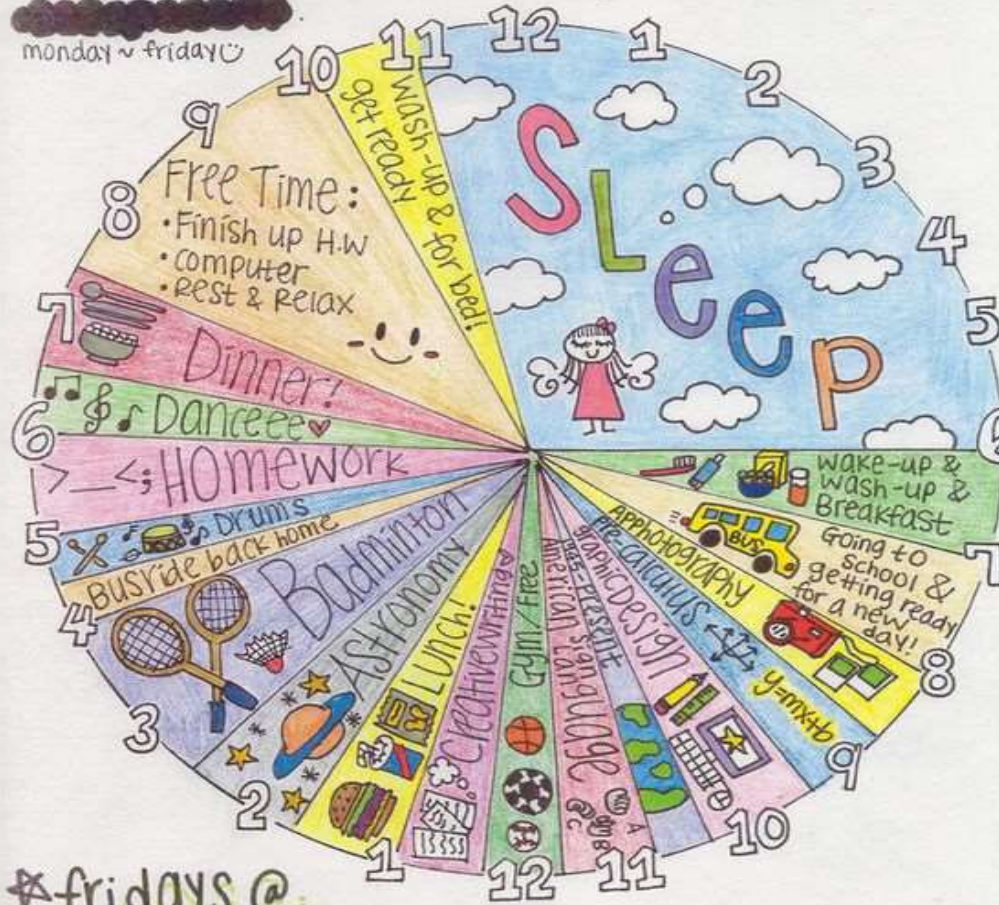 monday ~ friday
12
1
2
3
4
5
6
7
8
9
10
11
12
1
2
3
4
5
6
7
8
9
10
11
SLeep
wake-up &
wash-up &
Breakfast
Going to
school &
getting ready
for a new
day!
BUS
APphotography
pre-calculus
y=mx+b
graphicDesign
-Present
American Sign Language
A
B
C
Gym/Free
Creativewriting
LUNCH!
Astronomy
Badminton
BUSride back home
Drums
>_<; Homework
Danceee
Dinner!
Free Time:
• Finish up H.W
• computer
• Rest & Relax
wash-up &
get ready
for bed!
fridays @